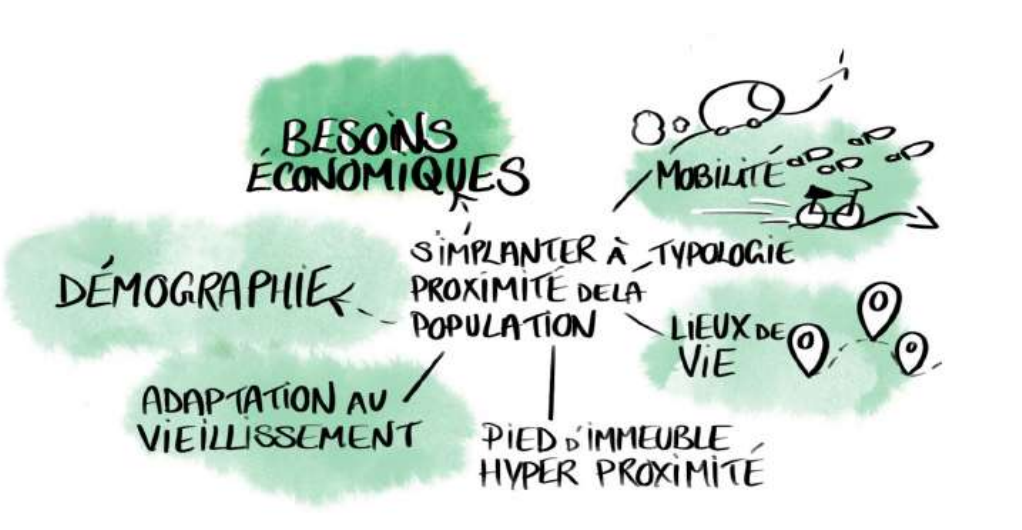 BESOINS
ÉCONOMIQUES
MOBILITÉ
SIMPLANTER À
PROXIMITÉ DE LA
POPULATION
TYPOLOGIE
DÉMOGRAPHIE
LIEUX DE
VIE
ADAPTATION AU
VIEILLISSEMENT
PIED D'IMMEUBLE
HYPER PROXIMITÉ